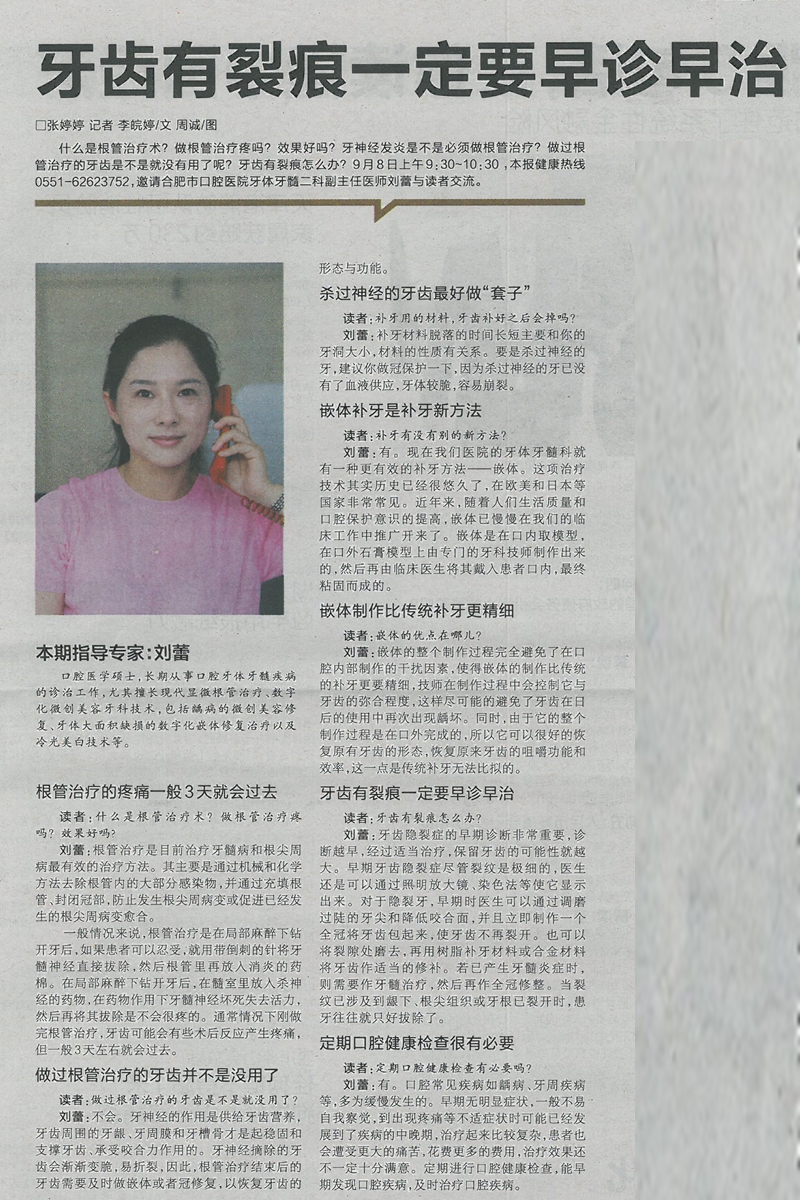 牙齿有裂痕一定要早诊早治
□张婷婷 记者 李皖婷/文 周诚/图
什么是根管治疗术？做根管治疗疼吗？效果好吗？牙神经发炎是不是必须做根管治疗？做过根
管治疗的牙齿是不是就没有用了呢？牙齿有裂痕怎么办？9月8日上午9:30~10:30，本报健康热线
0551-62623752，邀请合肥市口腔医院牙体牙髓二科副主任医师刘蕾与读者交流。
本期指导专家：刘蕾
口腔医学硕士，长期从事口腔牙体牙髓疾病
的诊治工作，尤其擅长现代显微根管治疗、数字
化微创美容牙科技术，包括龋病的微创美容修
复、牙体大面积缺损的数字化嵌体修复治疗以及
冷光美白技术等。
根管治疗的疼痛一般3天就会过去
读者：什么是根管治疗术？做根管治疗疼
吗？效果好吗？
刘蕾：根管治疗是目前治疗牙髓病和根尖周
病最有效的治疗方法。其主要是通过机械和化学
方法去除根管内的大部分感染物，并通过充填根
管、封闭冠部，防止发生根尖周病变或促进已经发
生的根尖周病变愈合。
一般情况来说，根管治疗是在局部麻醉下钻
开牙后，如果患者可以忍受，就用带倒刺的针将牙
髓神经直接拔除，然后根管里再放入消炎的药
棉。在局部麻醉下钻开牙后，在髓室里放入杀神
经的药物，在药物作用下牙髓神经坏死失去活力，
然后再将其拔除是不会很疼的。通常情况下刚做
完根管治疗，牙齿可能会有些术后反应产生疼痛，
但一般3天左右就会过去。
做过根管治疗的牙齿并不是没用了
读者：做过根管治疗的牙齿是不是就没用了？
刘蕾：不会。牙神经的作用是供给牙齿营养，
牙齿周围的牙龈、牙周膜和牙槽骨才是起稳固和
支撑牙齿、承受咬合力作用的。牙神经摘除的牙
齿会渐渐变脆，易折裂，因此，根管治疗结束后的
牙齿需要及时做嵌体或者冠修复，以恢复牙齿的
形态与功能。
杀过神经的牙齿最好做“套子”
读者：补牙用的材料，牙齿补好之后会掉吗？
刘蕾：补牙材料脱落的时间长短主要和你的
牙洞大小，材料的性质有关系。要是杀过神经的
牙，建议你做冠保护一下，因为杀过神经的牙已没
有了血液供应，牙体较脆，容易崩裂。
嵌体补牙是补牙新方法
读者：补牙有没有别的新方法？
刘蕾：有。现在我们医院的牙体牙髓科就
有一种更有效的补牙方法——嵌体。这项治疗
技术其实历史已经很悠久了，在欧美和日本等
国家非常常见。近年来，随着人们生活质量和
口腔保护意识的提高，嵌体已慢慢在我们的临
床工作中推广开来了。嵌体是在口内取模型，
在口外石膏模型上由专门的牙科技师制作出来
的，然后再由临床医生将其戴入患者口内，最终
粘固而成的。
嵌体制作比传统补牙更精细
读者：嵌体的优点在哪儿？
刘蕾：嵌体的整个制作过程完全避免了在口
腔内部制作的干扰因素，使得嵌体的制作比传统
的补牙更要精细，技师在制作过程中会控制它与
牙齿的弥合程度，这样尽可能的避免了牙齿在日
后的使用中再次出现龋坏。同时，由于它的整个
制作过程是在口外完成的，所以它可以很好的恢
复原有牙齿的形态，恢复原来牙齿的咀嚼功能和
效率，这一点是传统补牙无法比拟的。
牙齿有裂痕一定要早诊早治
读者：牙齿有裂痕怎么办？
刘蕾：牙齿隐裂症的早期诊断非常重要，诊
断越早，经过适当治疗，保留牙齿的可能性就越
大。早期牙齿隐裂症尽管裂纹是极细的，医生
还是可以通过照明放大镜、染色法等使它显示
出来。对于隐裂牙，早期时医生可以通过调磨
过陡的牙尖和降低咬合面，并且立即制作一个
全冠将牙齿包起来，使牙齿不再裂开。也可以
将裂隙处磨去，再用树脂补牙材料或合金材料
将牙齿作适当的修补。若已产生牙髓炎症时，
则需要作牙髓治疗，然后再作全冠修整。当裂
纹已涉及到龈下、根尖组织或牙根已裂开时，患
牙往往就只好拔除了。
定期口腔健康检查很有必要
读者：定期口腔健康检查有必要吗？
刘蕾：有。口腔常见疾病如龋病、牙周疾病
等，多为缓慢发生的。早期无明显症状，一般不易
自我察觉，到出现疼痛等不适症状时可能已经发
展到了疾病的中晚期，治疗起来比较复杂，患者也
会遭受更大的痛苦，花费更多的费用，治疗效果还
不一定十分满意。定期进行口腔健康检查，能早
期发现口腔疾病，及时治疗口腔疾病。